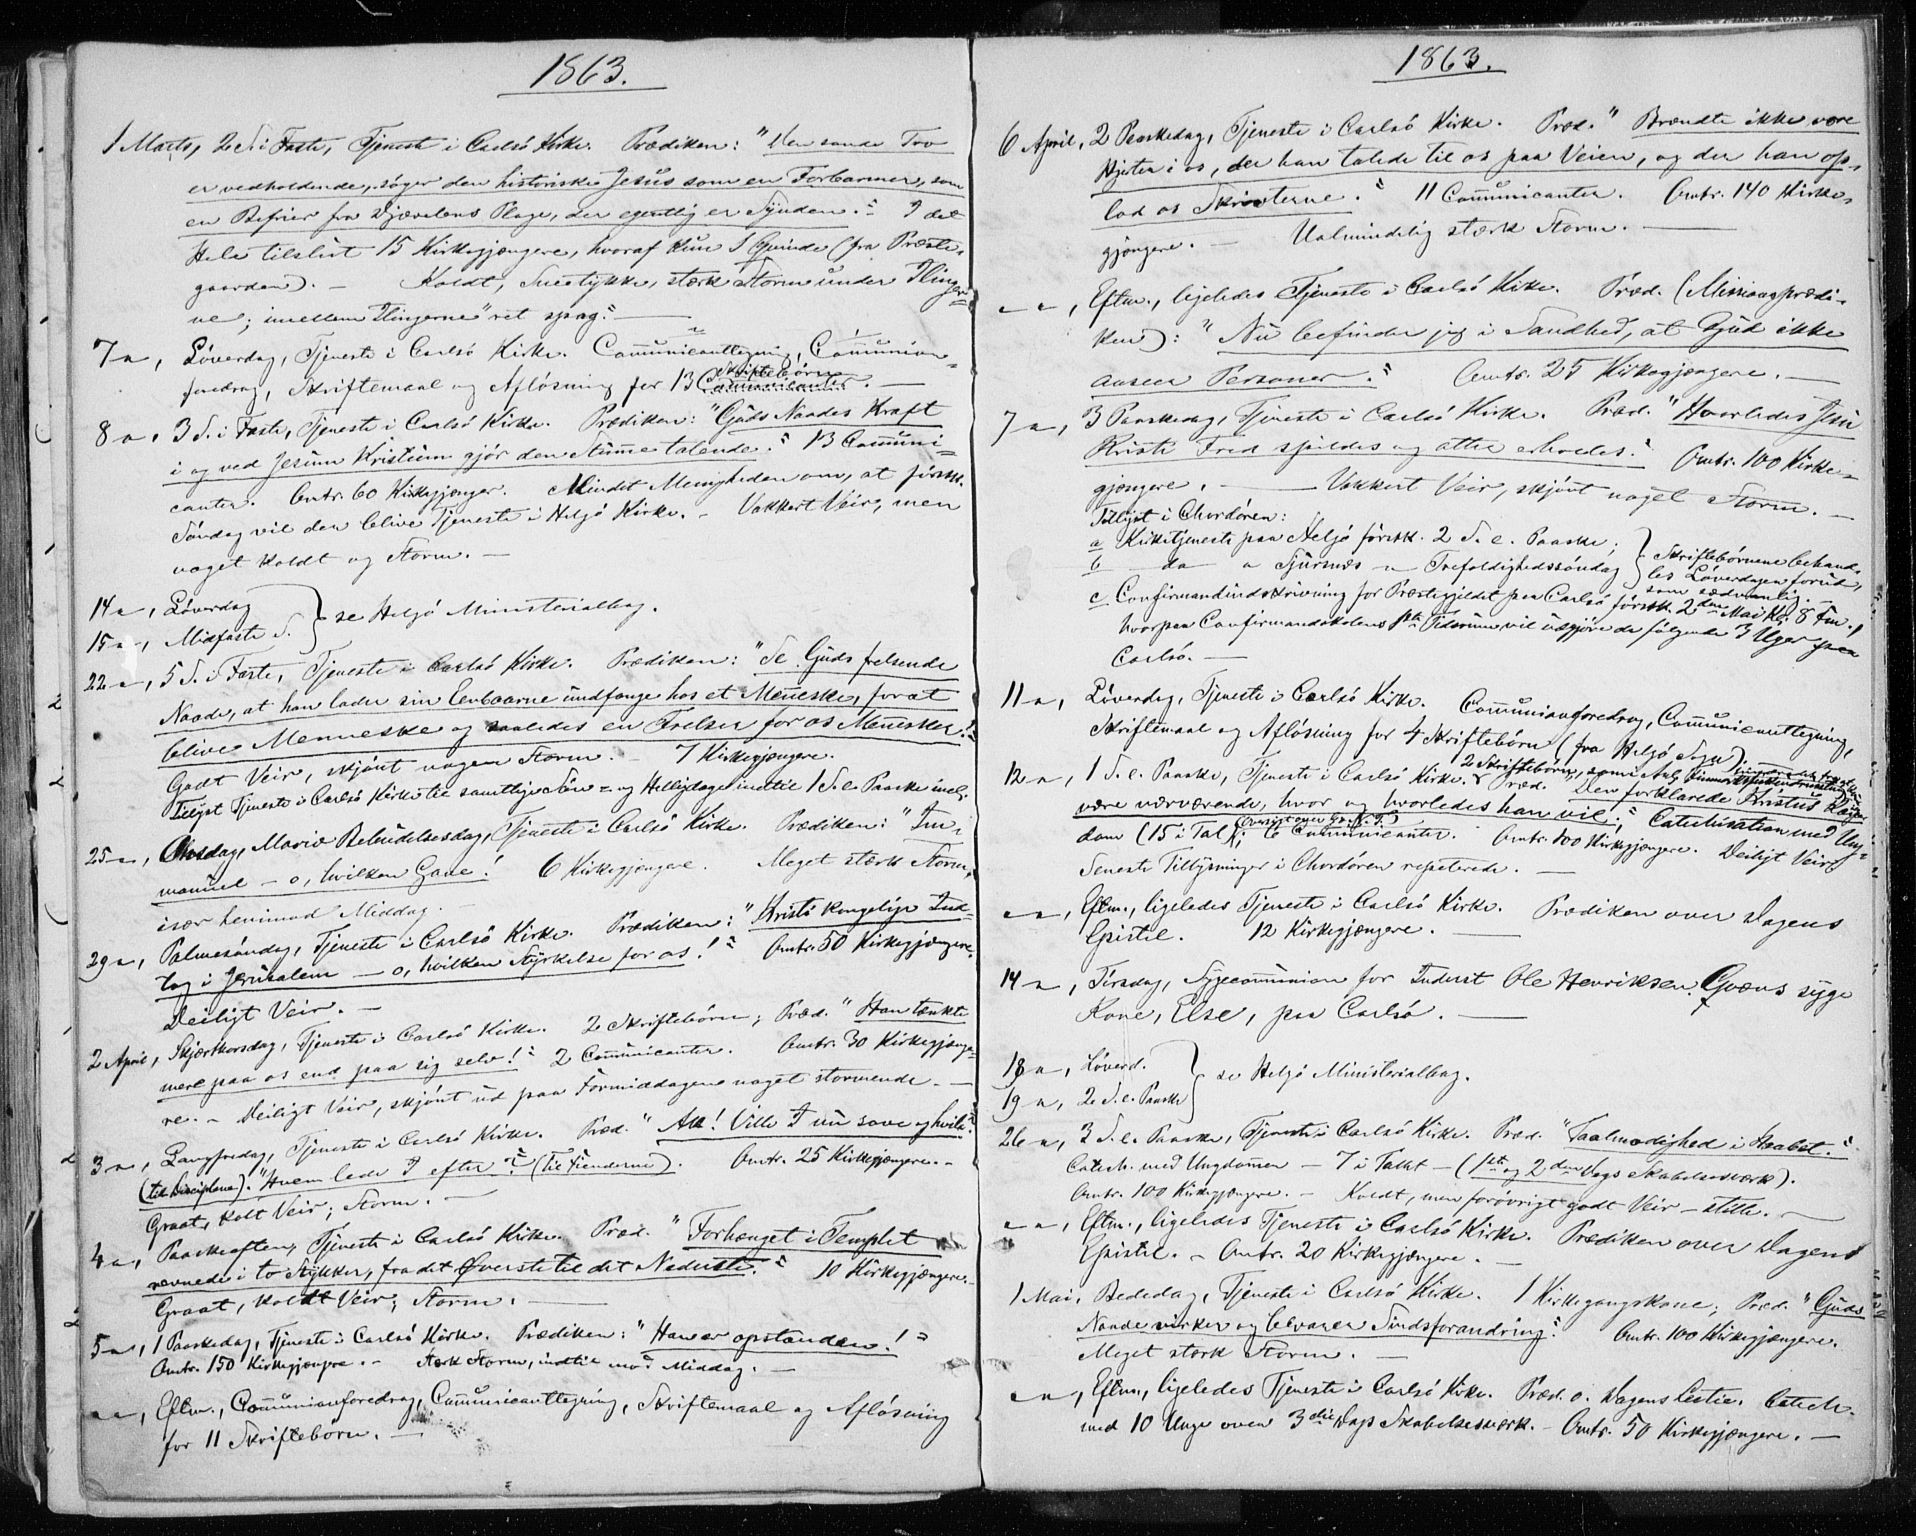 1863.
1 Marts, 2 S. i Faste, Tjeneste i Carlsö Kirke. Prædiken: "Den sande Tro
er vedholdende, söger den historiske Jesus som en Forbarmer, som
en Befrier fra Djævelens Plage, der egentlig er Synden." I det
Hele tilslut 15 Kirkegjængere, hvoraf kun 1 Qvinde (fra Præste-
gaarden). — Koldt, Sneetykke, stærk Storm under Ilinger-
ne; imellem Ilingerne "ret spag." —
7 — , Löverdag, Tjeneste i Carlsö Kirke. Communicanttegning, Communion-
foredrag, Skriftemaal og Aflösning for 13 Skriftebörn. —
8 — , 3 S. i Faste, Tjeneste i Carlsö Kirke. Prædiken: "Guds Naades Kraft
i og ved Jesum Kristum gjör den Stumme talende." 13 Communi-
canter. Omtr. 60 Kirkegjænger. Mindet Menigheden om, at förstk.
Söndag vil der blive Tjeneste i Helgö Kirke. — Vakkert Veir, men
noget koldt og Storm. —
14 — , Löverdag
15 — , Midfaste S. } se Helgö Ministerialbog.
22 — , 5 S. i Faste, Tjeneste i Carlsö Kirke. Prædiken: "Se Guds frelsende
Naade, at han lader sin Eenbaarne undfange hos et Menneske, for at
blive Menneske og saaledes en Frelser for os Mennesker."
Godt Veir, skjönt nogen Storm. — 7 Kirkegjængere.
Tillyst Tjeneste i Carlsö Kirke til samtlige Sön- og Helligdage indtil 1 S. e. Paaske incl.
25 — , Onsdag, Mariæ Bebudelsesdag, Tjeneste i Carlsö Kirke. Prædiken: "Im-
manuel — o, hvilken Gave! 6 Kirkegjængere. Meget stærk Storm,
især henimod Middag. —
29 — , Palmesöndag, Tjeneste i Carlsö Kirke. Prædiken: "Kristi kongelige Ind-
tog i Jerusalem — o, hvilken Styrkelse for os!" Omtr. 50 Kirkegjængere.
Deiligt Veir. —
2 April, Skjærthorsdag, Tjeneste i Carlsö Kirke. 2 Skriftebörn; Præd. "Han tænkte
mere paa os end paa sig selv!" 2 Communicanter. Omtr. 30 Kirkegjænge-
re. — Deiligt Veir, skjönt ud paa Formiddagen noget stormende. —
3 — , Langfredag, Tjeneste i Carlsö Kirke. Præd. "Ak! Ville I nu sove og hvile"
(til Disciplene). "Hvem lede I efter?" (til Fienderne). Omtr. 25 Kirkegjængere. —
Graat, kolt Veir; Storm. —
4 — , Paaskeaften, Tjeneste i Carlsö Kirke. Præd. "Forhænget i Templet
revnede i to Stykker, fra det Överste til det Nederste." 10 Kirkegjængere.
Graat, koldt Veir; Storm. —
5 — , 1 Paaskedag, Tjeneste i Carlsö Kirke. Prædiken: "Han er opstanden!"
Omtr. 150 Kirkegjængere. — Stærk Storm, indtil mod Middag. —
— — , Eftm., Communionforedrag, Communicanttegning, Skriftemaal og Aflösning
for 11 Skriftebörn. —
1863.
6 April, 2 Paaskedag, Tjeneste i Carlsö Kirke. Præd. "Brændte ikke vore
Hjerter i os, der han talede til os paa Veien, og der han op-
lod os Skrifterne." 11 Communicanter. Omtr. 140 Kirke-
gjængere. — Ualmindelig stærk Storm. —
— — , Eftm., ligeledes Tjeneste i Carlsö Kirke. Præd. (Missionsprædi-
ken): "Nu befinder jeg i Sandhed, at Gud ikke
anseer Personer." Omtr. 25 Kirkegjængere. —
7 — , 3 Paaskedag, Tjeneste i Carlsö Kirke. Præd. "Hvorledes Jesu
Kristi Fred spildes og atter erholdes." Omtr. 100 Kirke-
gjængere. — Vakkert Veir, skjönt noget Storm. —
Tillyst i Chordören:
a Kirketjeneste paa Helgö förstk. 2 S. e. Paaske;
b — do — Sjursnæs — Trefoldighedssöndag } Skriftebörnene behand-
les Löverdagen forud,
som sædvanlig.
c Confirmandindskrivning for Præstegjeldet paa Carlsö förstk. 2den Mai Kl. 8 Fm.,
hvorpaa Confirmandskolens 1ste Tidsrum vil udgjöre de fölgende 3 Uger paa
Carlsö. —
11 — , Löverdag, Tjeneste i Carlsö Kirke. Communionforedrag, Communicanttegning,
Skriftemaal og Aflösning for 4 Skriftebörn (fra Helgö Sogn).
12 — , 1 S. e. Paaske, Tjeneste i Carlsö Kirke. 2 Skriftebörn, Præd. "Den forklarede Kristus kan
være nærværende, hvor og hvorledes han vil;" Catechisation med Ung-
dom (15 i Tal) (Oversigt over G. og N. T.); 6 Communicanter. Omtr. 100 Kirkegjængere. Deiligt Veir.
Seneste Tillysninger i Chordören repeterede. —
— — , Eftm., ligeledes Tjeneste i Carlsö Kirke. Prædiken over Dagens
Epistel. 12 Kirkegjængere. —
14 — , Tirsdag, Sygecommunion for Inderst Ole Henriksen Qvæns syge
Kone, Else, paa Carlsö. —
18 — , Löverd.
19 — , 2 S. e. Paaske } se Helgö Ministerialbog.
26 — , 3 S. e. Paaske, Tjeneste i Carlsö Kirke. Præd. "Taalmodighed i Haabet."
Catech. med Ungdommen — 7 i Tallet — (1ste og 2den Dags Skabelsesværk).
Omtr. 100 Kirkegjængere. — Koldt, men forövrigt godt Veir — stille. —
— — , Eftm., ligeledes Tjeneste i Carlsö Kirke. Prædiken over Dagens
Epistel. — Omtr. 20 Kirkegjængere. —
1 Mai, Bededag, Tjeneste i Carlsö Kirke. 1 Kirkegangskone; Præd. "Guds
Naade virker og bevarer Sindsforandring." Omtr. 100 Kirkegjængere.
Meget stærk Storm. —
— — , Eftm., ligeledes Tjeneste i Carlsö Kirke. Præd. o. Dagens Lectie. Catech.
med 10 Unge over 3die Dags Skabelsesværk. — Omtr. 50 Kirkegjængere. —